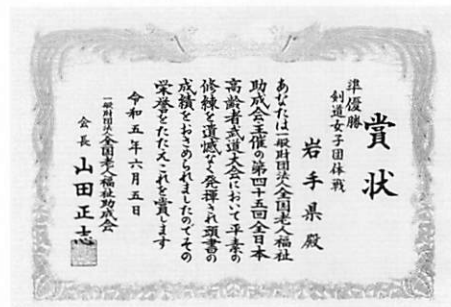 賞状
準優勝
剣道女子団体戦
岩手県殿
あなたは一般財団法人全国老人福祉
助成会主催の第四十五回全日本
高齢者武道大会において平素の
修練を遺憾なく発揮され頭書の
成績をおさめられましたのでその
栄誉をたたえこれを賞します
令和五年六月五日
一般財団法人全国老人福祉助成会
会長 山田正志